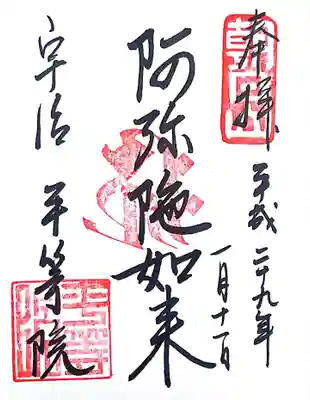 奉拝 平成二十九年
一月十一日
阿弥陀如来
宇治 平等院